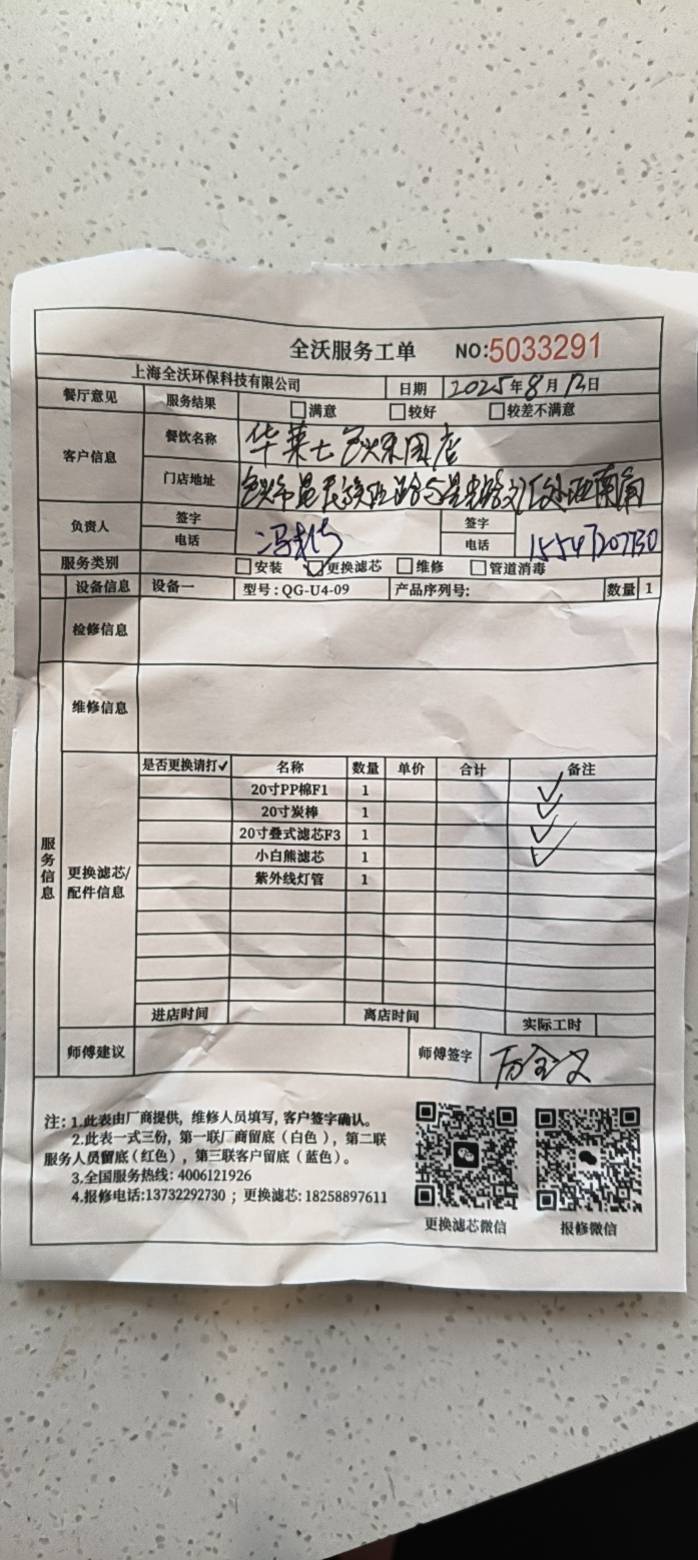 全沃服务工单 NO:5033291
上海全沃环保科技有限公司 日期 2025年8月12日
餐厅意见 服务结果 满意 较好 较差不满意
客户信息 餐饮名称 华莱士 店
门店地址
负责人 签字 签字
电话 电话 15547207730
服务类别 安装 更换滤芯 维修 管道消毒
设备信息 设备一 型号:QG-U4-09 产品序列号: 数量 1
检修信息
维修信息
服务信息
更换滤芯/
配件信息
是否更换请打✓ 名称 数量 单价 合计 备注
20寸PP棉F1 1 ✓
20寸炭棒 1 ✓
20寸叠式滤芯F3 1 ✓
小白熊滤芯 1 ✓
紫外线灯管 1
进店时间 离店时间 实际工时
师傅建议 师傅签字
注: 1.此表由厂商提供, 维修人员填写, 客户签字确认。
2.此表一式三份, 第一联厂商留底(白色), 第二联
服务人员留底(红色), 第三联客户留底(蓝色)。
3.全国服务热线: 4006121926
4.报修电话:13732292730 ; 更换滤芯: 18258897611
更换滤芯微信 报修微信